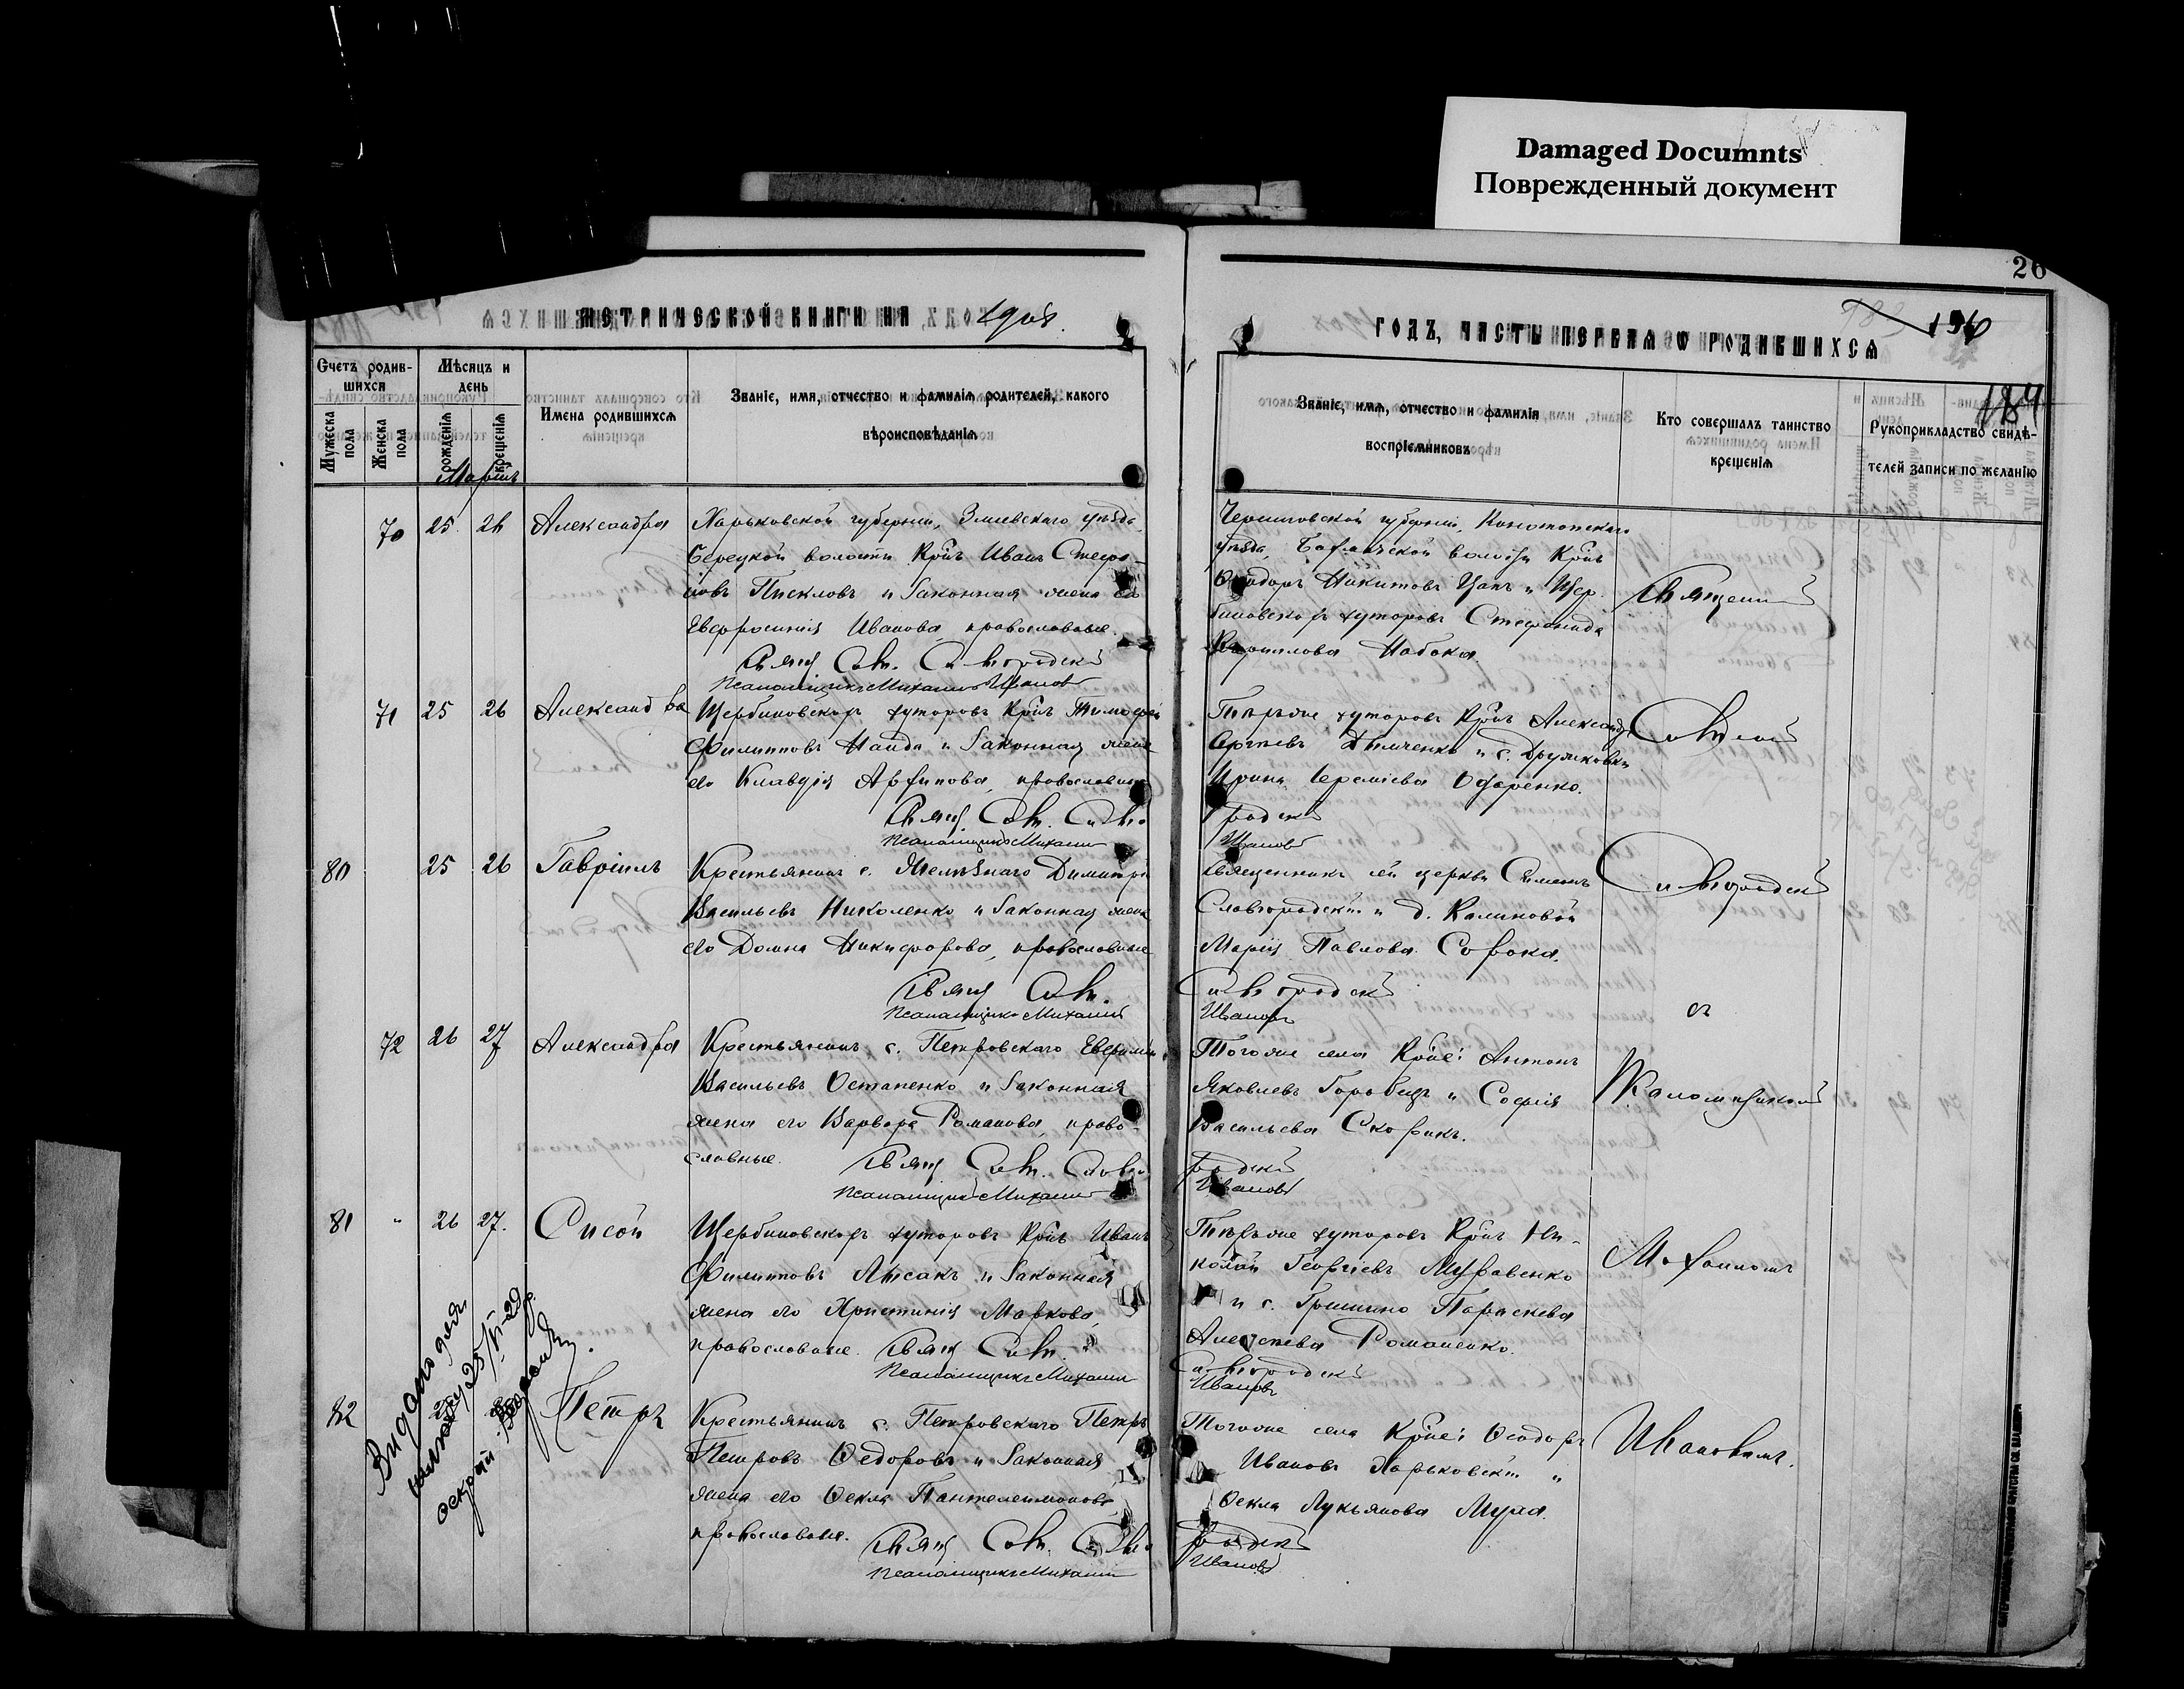 Damaged Documnts
Поврежденный документ
26
МЕТРИЧЕСКОЙ КНИГИ НА 1908
ГОДЪ, ЧАСТЬ ПЕРВАЯ О РОДИВШИХСЯ
196
184
Счетъ родив-
шихся
Мѣсяцъ и
день
Мужеска
пола
Женска
пола
рожденія
крещенія
Имена родившихся
Званіе, имя, отчество и фамилія родителей, какого
вѣроисповѣданія
Званіе, имя, отчество и фамилія
воспріемниковъ
Кто совершалъ таинство
крещенія
Рукоприкладство свидѣ-
телей записи по желанію
Мартъ
70 25 26 Александра
Харьковской губерніи, Зміевскаго уѣзда
Берецкой волости Кр̃нъ Иванъ Стефа-
новъ Пискловъ и законная жена его
Евфросинія Иванова, православные.
Свящ. Сим. Славгородскій
Псаломщикъ Михаилъ Ивановъ
Черниговской губерніи, Конотопскаго
уѣзда, Батуринской волости Кр̃нъ
Ѳеодоръ Никитовъ Цапъ и Щер-
биновскихъ хуторовъ Стефанида
Кириллова Набока.
Священникъ
71 25 26 Александра
Щербиновскихъ хуторовъ Кр̃нъ Тимофей
Филипповъ Найда и законная жена
его Клавдія Архипова, православные
Свящ. Сим. Славго
Псаломщикъ Михаилъ
Тѣхъже хуторовъ Кр̃нъ Александръ
Сергѣевъ Дьяченко и с. Дружковки
Ирина Іереміева Охаренко.
родскій
Ивановъ
Симеонъ
80 25 26 Гавріилъ
Крестьянинъ с. Желѣзнаго Димитрій
Васильевъ Николенко и законная жена
его Домна Никифорова, православные
Свящ. Сим.
Псаломщикъ Михаилъ
Священникъ сей церкви Симеонъ
Славгородскій и д. Калиновой
Марія Павлова Сорока.
Славгородскій
Ивановъ
Славгородскій
съ
72 26 27 Александра
Крестьянинъ с. Петровскаго Евфимій
Васильевъ Остапенко и законная
жена его Варвара Романова, право-
славные.
Свящ. Сим. Славго
Псаломщикъ Михаилъ
Тогоже села Кр̃не: Антонъ
Яковлевъ Горобецъ и Софія
Васильева Скорикъ.
родскій
Ивановъ
Псаломщикомъ
81 " 26 27. Сисой
Щербиновскихъ хуторовъ Кр̃нъ Иванъ
Филипповъ Лисакъ и законная
жена его Христинія Маркова,
православные.
Свящ. Сим.
Псаломщикъ Михаилъ
Тѣхъже хуторовъ Кр̃нъ Ни-
колай Георгіевъ Муравенко
и с. Гришино Параскева
Алексѣева Романенко.
Славгородскій
Ивановъ
Михаиломъ
82 Петръ
Крестьянинъ с. Петровскаго Петръ
Петровъ Ѳедоровъ и законная
жена его Ѳекла Пантелеимонова
православные.
Свящ. Сим. Славго
Псаломщикъ Михаилъ
Тогоже села Кр̃не: Ѳеодоръ
Ивановъ Харьковскій и
Ѳекла Лукьянова Мула.
родскій
Ивановъ
Ивановымъ.
Видано для
25/VI-29р.